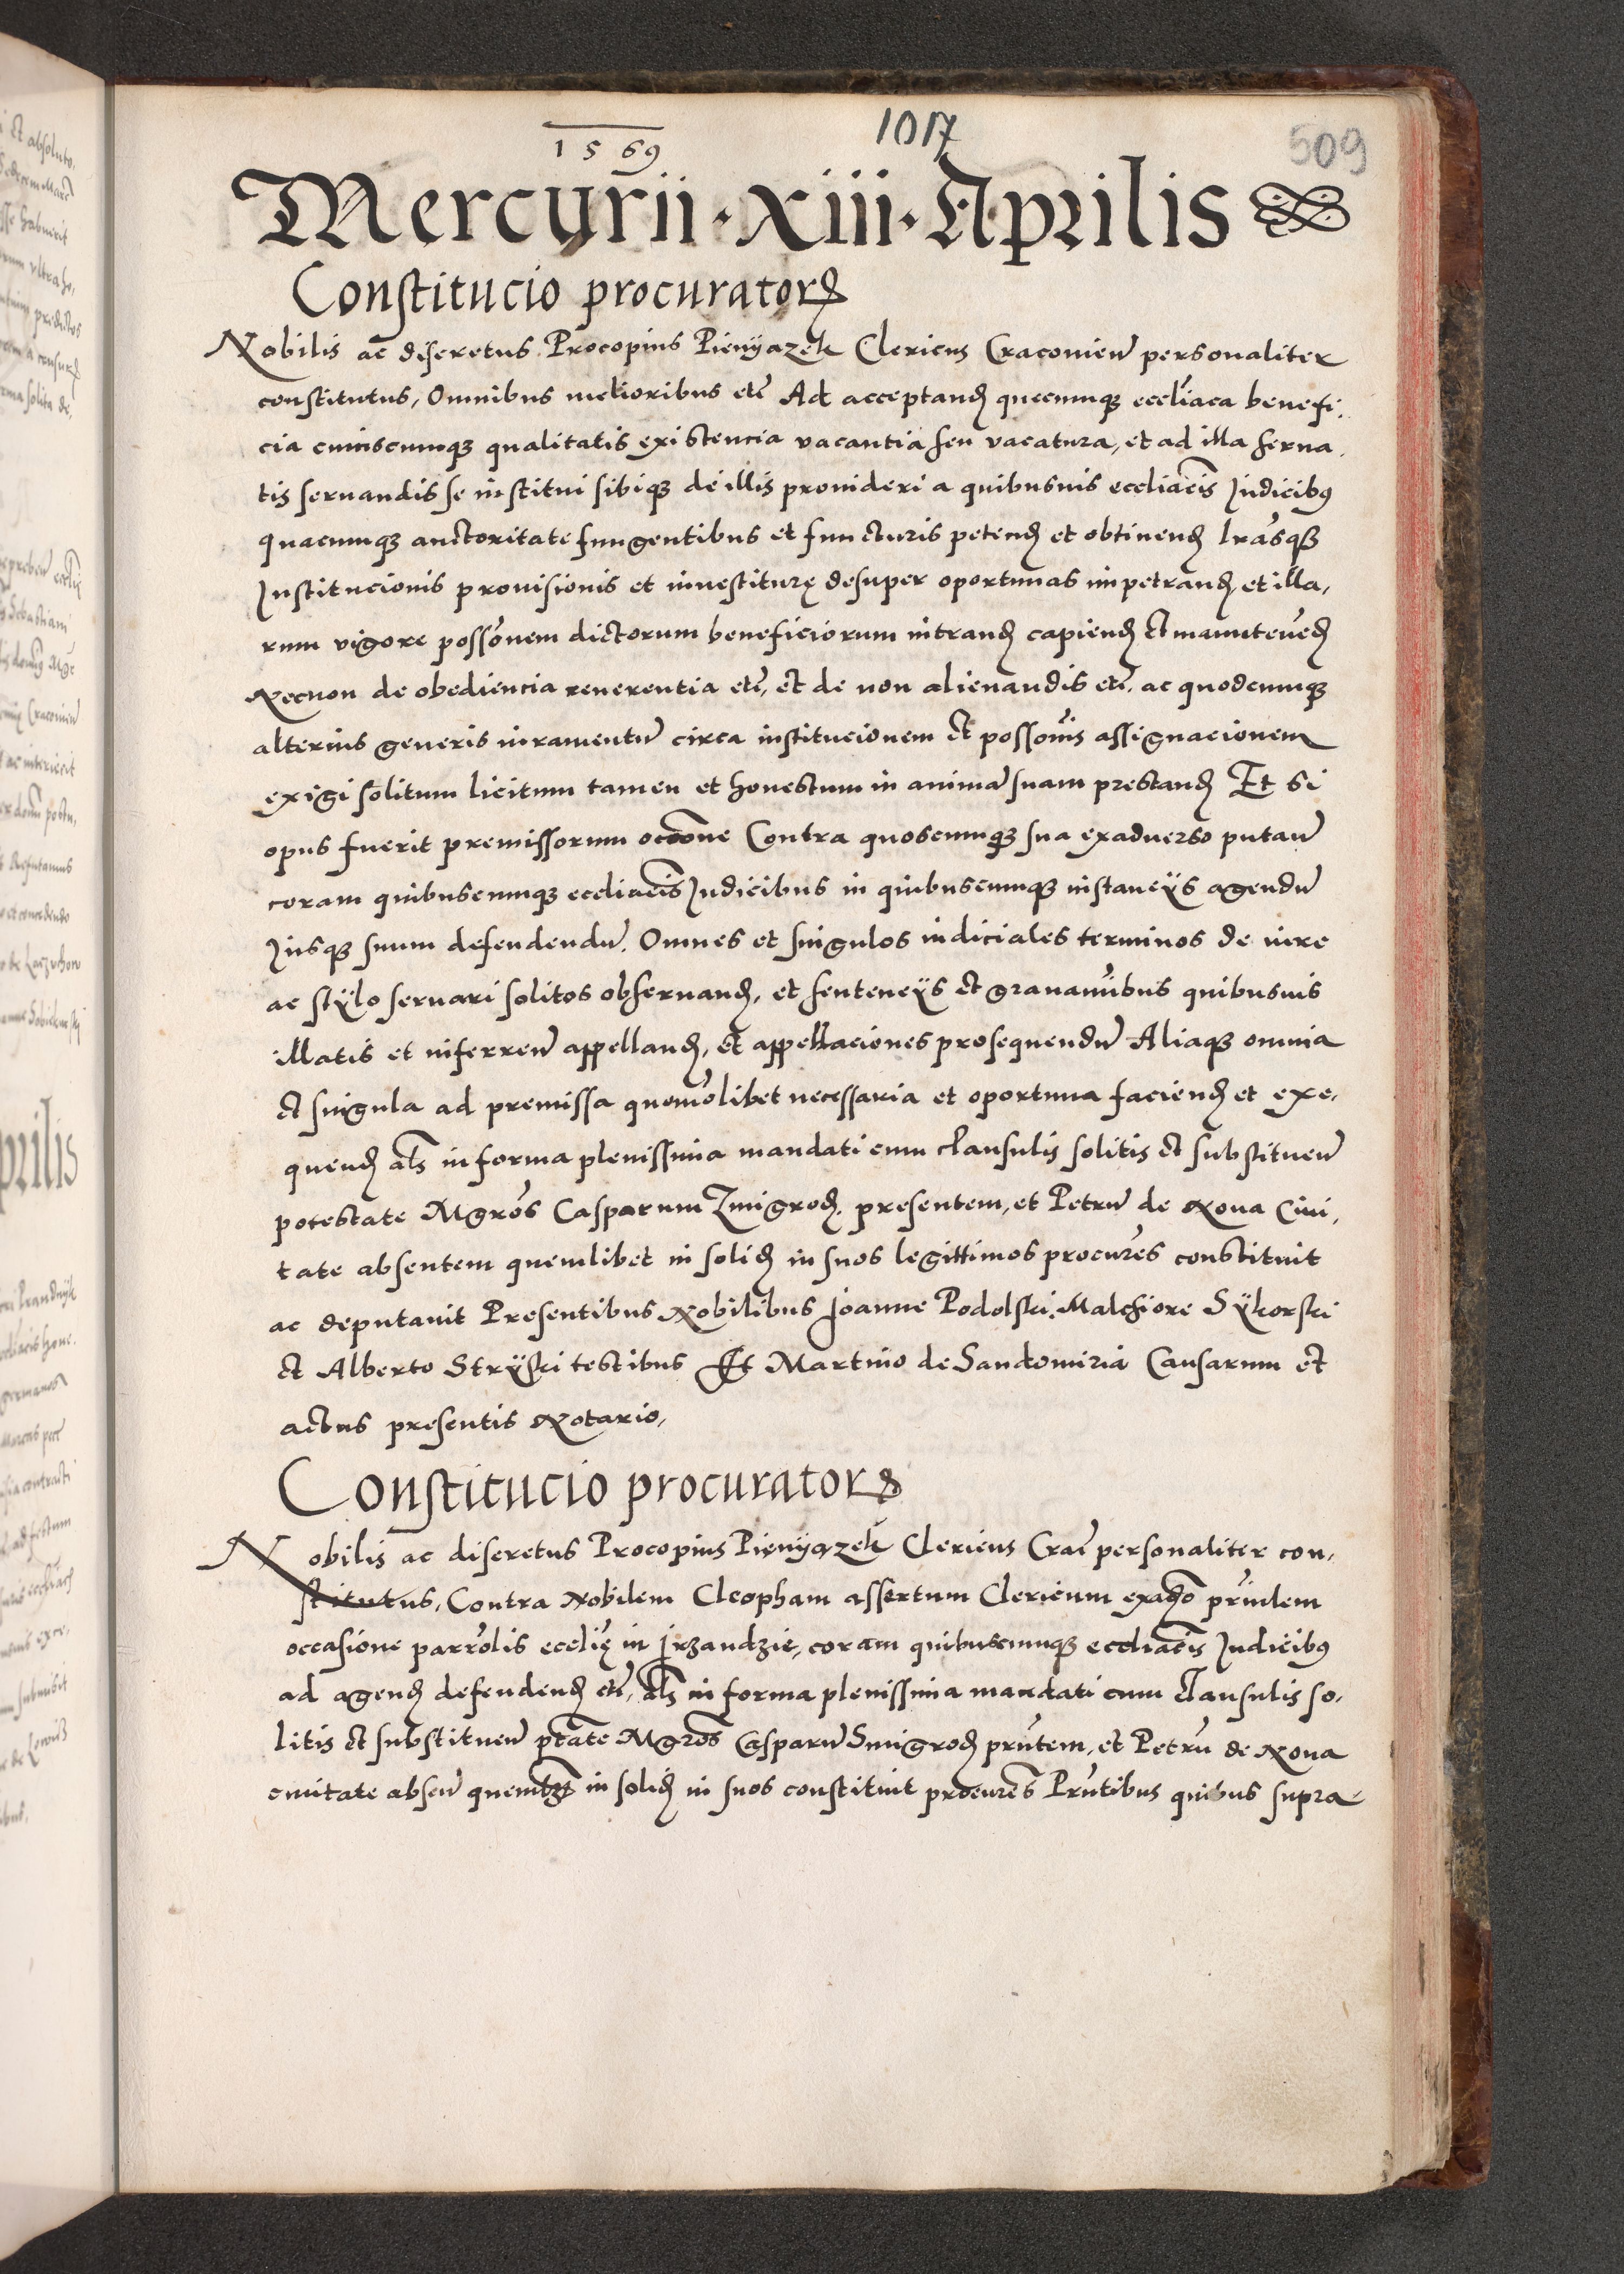 1569
1017
509
Mercurii · xiii · Aprilis
Constitucio procurator
Nobilis ac discretus Procopius Pienyazek Clericus Cracovien personaliter
constitutus, Omnibus melioribus etc Ad acceptand quecumque eccliaca benefi,
cia cuiuscumque qualitatis existencia vacantia seu vacatura, et ad illa serva,
tis servandis se institui sibique de illis provideri a quibusvis eccliacis Iudicibus
quacumque auctoritate fungentibus et functuris petend et obtinend lrasque
Institucionis provisionis et investiturę desuper oportunas impetrand, et illa,
rum vigore possonem dictorum beneficiorum intrand capiend et manutened
Necnon de obediencia reverentia etc, et de non alienandis etc, ac quodcumque
alterius generis iuramentu circa institucionem et possonis assignacionem
exigi solitum licitum tamen et honestum in anima suam prestand Et si
opus fuerit premissorum occone Contra quoscumque sua exadverso putan
coram quibuscumque eccliacis Iudicibus in quibuscumque instancijs agendu
Iusque suum defendendu. Omnes et singulos iudiciales terminos de iure
ac stÿlo servari solitos observand, et sentencÿs et gravanibus quibusvis
illatis et inferren appelland, et appellaciones prosequendu Aliaque omnia
et singula ad premissa quomolibet necessaria et oportuna faciend et exe,
quend als in forma plenissima mandati cum clausulis solitis et substituen
potestate Mgros Casparum Zmigrod. presentem, et Petru de Nova Civi,
tate absentem quemlibet in solid in suos legittimos procures constituit
ac deputavit Presentibus Nobilibus Joanne Podolski, Malchiore Sÿkorski
et Alberto Strÿski testibus Et Martino de Sandomiria Causarum et
actus presentis Notario,
Constitucio procurator
Nobilis ac discretus Procopius Pienyazek Clericus Crac personaliter con,
stitutus, Contra Nobilem Cleopham assertum Clericum exadso principlem
occasione parrolis ecclię in Irzandzie, coram quibuscumque eccliacis Iudicibus
ad agend defendend etc, als in forma plenissima mandati cum clausulis so,
litis et substituen ptate Mgros Casparu Smigrod prntem, et Petru de Nova
civitate absen quemlibet in solid in suos constituit procures Prntibus quibus supra